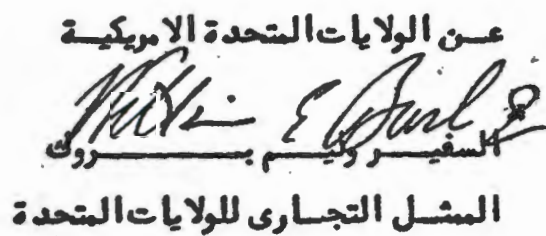 عن الولايات المتحدة الامريكية
السفير وليم بروك
الممثل التجارى للولايات المتحدة